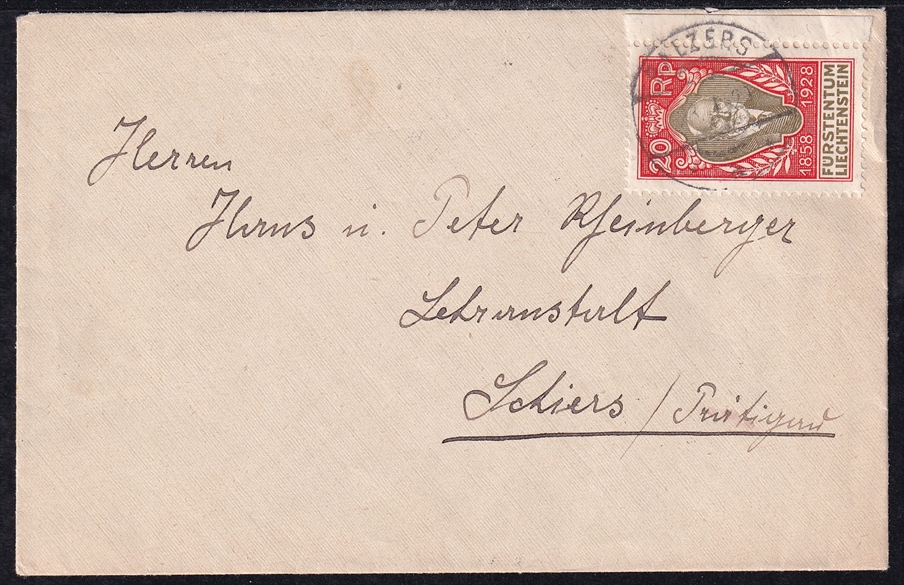 BALZERS
20 RP
1858 1928
FÜRSTENTUM
LIECHTENSTEIN
Herren
Hans u. Peter Rheinberger
Lehranstalt
Schiers / Prätigau